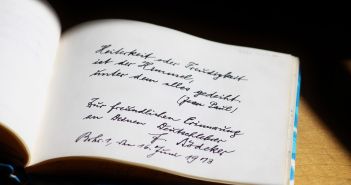 Heiterkeit oder Freudigkeit
ist der Himmel,
unter dem alles gedeiht.
(Jean Paul)
Zur freundlichen Erinnerung
an Deinen Deutschlehrer
F. Rödeker
den 16. Juni 1979